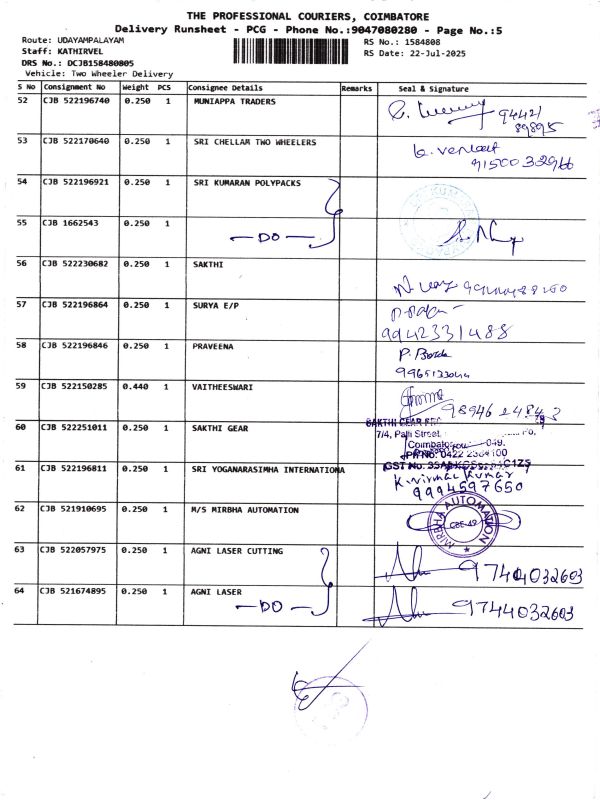 THE PROFESSIONAL COURIERS, COIMBATORE
Delivery Runsheet - PCG - Phone No.:9047080280 - Page No.:5
Route: UDAYAMPALAYAM
RS No.: 1584808
Staff: KATHIRVEL
RS Date: 22-Jul-2025
DRS No.: DCJB158480805
Vehicle: Two Wheeler Delivery
S No Consignment No Weight PCS Consignee Details Remarks Seal & Signature
52 CJB 522196740 0.250 1 MUNIAPPA TRADERS 94421
89895
53 CJB 522170640 0.250 1 SRI CHELLAM TWO WHEELERS K. Venkat
9150032966
54 CJB 522196921 0.250 1 SRI KUMARAN POLYPACKS
55 CJB 1662543 0.250 1 —DO—
56 CJB 522230682 0.250 1 SAKTHI
57 CJB 522196864 0.250 1 SURYA E/P
9942331488
58 CJB 522196846 0.250 1 PRAVEENA P.
59 CJB 522150285 0.440 1 VAITHEESWARI
60 CJB 522251011 0.250 1 SAKTHI GEAR SAKTHI GEAR
7/4, Palli Street,
Coimbatore 049.
PH No: 0422
GST No:
61 CJB 522196811 0.250 1 SRI YOGANARASIMHA INTERNATIONA K. Nirmal Kumar
9994597650
62 CJB 521910695 0.250 1 M/S MIRBHA AUTOMATION MIRBHA AUTOMATION
CBE-49
63 CJB 522057975 0.250 1 AGNI LASER CUTTING 9744032603
64 CJB 521674895 0.250 1 AGNI LASER —DO— 9744032603